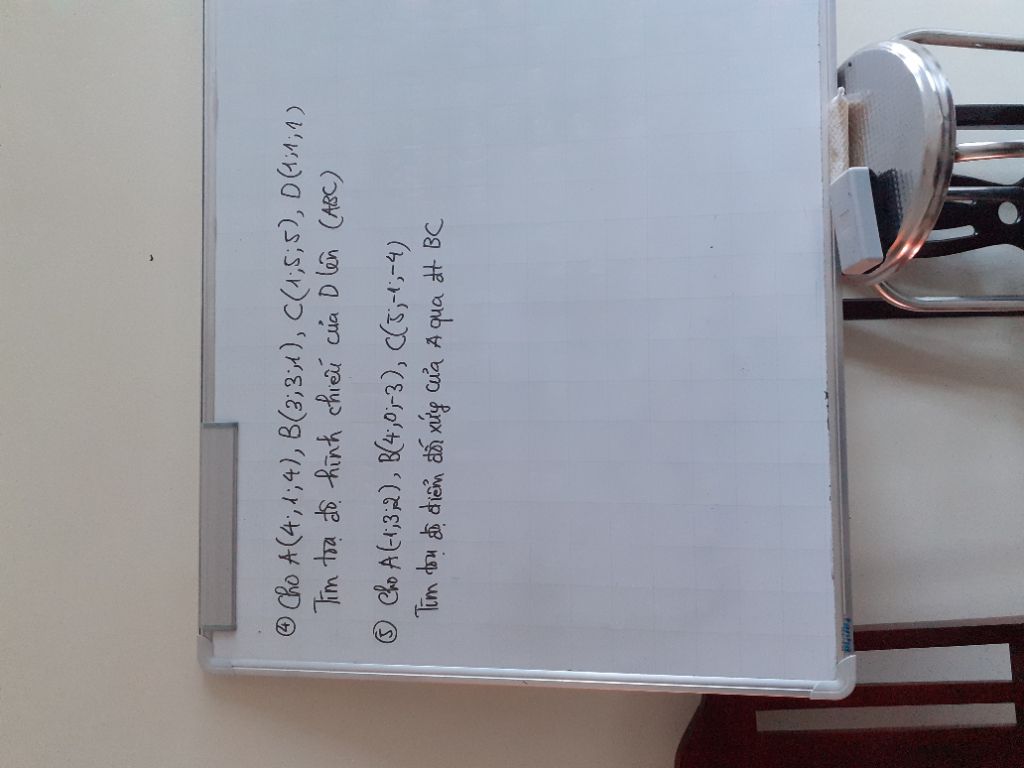 ④ Cho A(4;1;4), B(3;3;1), C(1;5;5), D(1;1;1)
Tìm toạ độ hình chiếu của D lên (ABC)
⑤ Cho A(-1;3;2), B(4;0;-3), C(5;-1;-4)
Tìm toạ độ điểm đối xứng của A qua đt BC